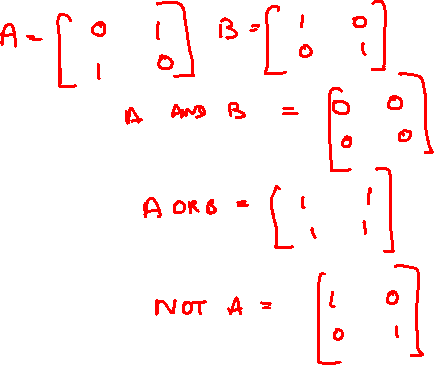 A = [ 0 1 B = [ 1 0
1 0 ] 0 1 ]
A AND B = [ 0 0
0 0 ]
A OR B = [ 1 1
1 1 ]
NOT A = [ 1 0
0 1 ]